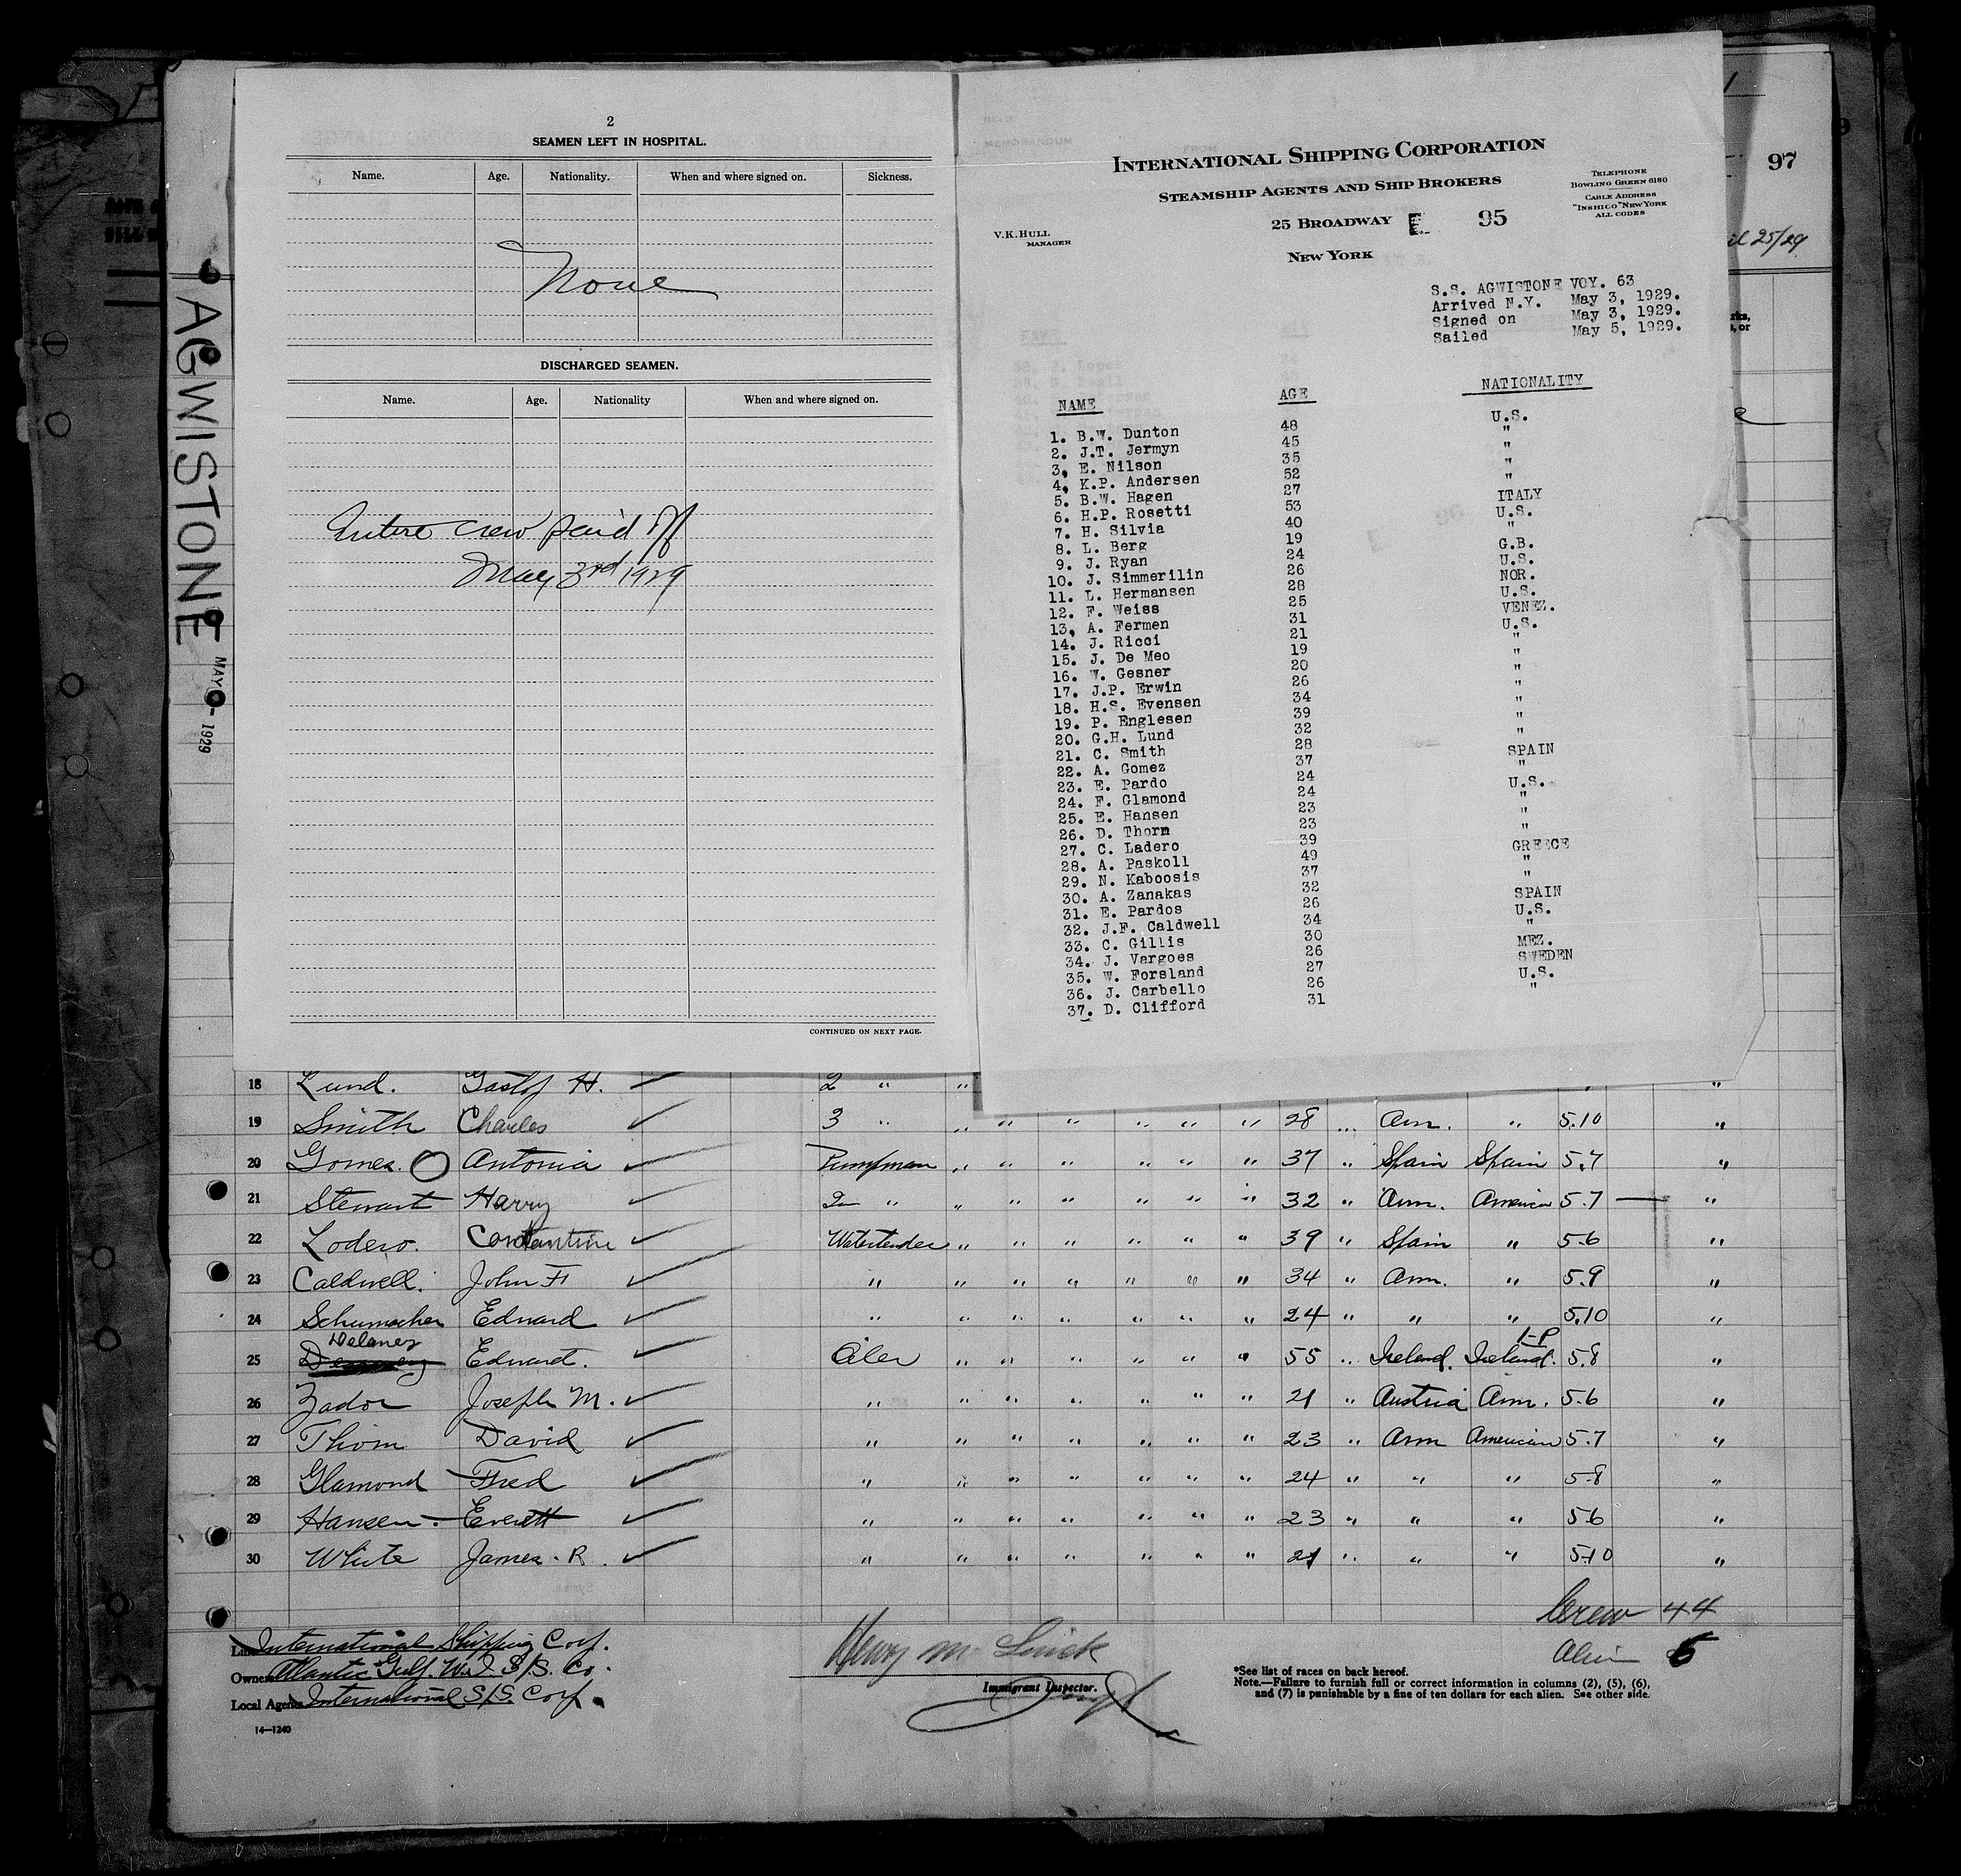 AGWISTONE
MAY - 1929
2
SEAMEN LEFT IN HOSPITAL.
Name. Age. Nationality. When and where signed on. Sickness.
None
DISCHARGED SEAMEN.
Name. Age. Nationality When and where signed on.
Entire crew paid off
May 3rd 1929
CONTINUED ON NEXT PAGE.
INTERNATIONAL SHIPPING CORPORATION
STEAMSHIP AGENTS AND SHIP BROKERS
25 BROADWAY 95
NEW YORK
V.K. HULL
MANAGER
TELEPHONE
BOWLING GREEN 6180
CABLE ADDRESS
"INSHICO" NEW YORK
ALL CODES
97
25/29
S.S. AGWISTONE VOY. 63
Arrived N.Y. May 3, 1929.
Signed on May 3, 1929.
Sailed May 5, 1929.
NAME AGE NATIONALITY
1. B.W. Dunton 48 U.S.
2. J.T. Jermyn 45 "
3, E. Nilson 35 "
4, K.P. Andersen 52 "
5. B.W. Hagen 27 "
6. H.P. Rosetti 53 ITALY
7. H. Silvia 40 U.S.
8. L. Berg 19 "
9. J. Ryan 24 G.B.
10. J. Simmerilin 26 U.S.
11. L. Hermansen 28 NOR.
12. F. Weiss 25 U.S.
13, A. Fermen 31 VENEZ.
14. J. Ricci 21 U.S.
15. J. De Meo 19 "
16. W. Gesner 20 "
17. J.P. Erwin 26 "
18. H.S. Evensen 34 "
19. P. Englesen 39 "
20. G.H. Lund 32 "
21. C. Smith 28 "
22. A. Gomez 37 SPAIN
23. E. Pardo 24 "
24. F. Glamond 24 U.S.
25. E. Hansen 23 "
26. D. Thorn 23 "
27. C. Ladero 39 "
28. A. Paskoll 49 GREECE
29. N. Kaboosis 37 "
30. A. Zanakas 32 "
31. E. Pardos 26 SPAIN
32. J.F. Caldwell 34 U.S.
33. C. Gillis 30 "
34. J. Vargoes 26 MEZ.
35. W. Forsland 27 SWEDEN
36. J. Carbello 26 U.S.
37. D. Clifford 31 "
18 Lund. H. 2 " " "
19 Smith Charles 3 " " " " " " " 28 " Am. " 5.10 "
20 Gomez. Antonia Pumpman " " " " " " 37 " Spain Spain 5.7 "
21 Stewart Harry " " " " " " " 32 " Am. American 5.7 "
22 Lodero. Constantine Watertender " " " " " " 39 " Spain " 5.6 "
23 Caldwell. John F " " " " " " " 34 " Am. " 5.9 "
24 Schumacher Edward " " " " " " " 24 " " " 5.10 "
Delaney
25 Edward. Oiler " " " " " " 55 " Ireland. Ireland. 5.8 "
26 Zador Joseph M. " " " " " " " 21 " Austria Am. 5.6 "
27 Thorn David " " " " " " " 23 " Am American 5.7 "
28 Glamond Fred " " " " " " " 24 " " " 5.8 "
29 Hansen. Everett " " " " " " " 23 " " " 5.6 "
30 White James. R. " " " " " " " 21 " " " 5.10 "
Crew 44
Alien 6
Line International Shipping Corp.
Owner Atlantic Gulf. W.I. S/S. Co.
Local Agents International S/S. Corp.
14—1240
Immigrant Inspector.
*See list of races on back hereof.
Note.—Failure to furnish full or correct information in columns (2), (5), (6),
and (7) is punishable by a fine of ten dollars for each alien. See other side.